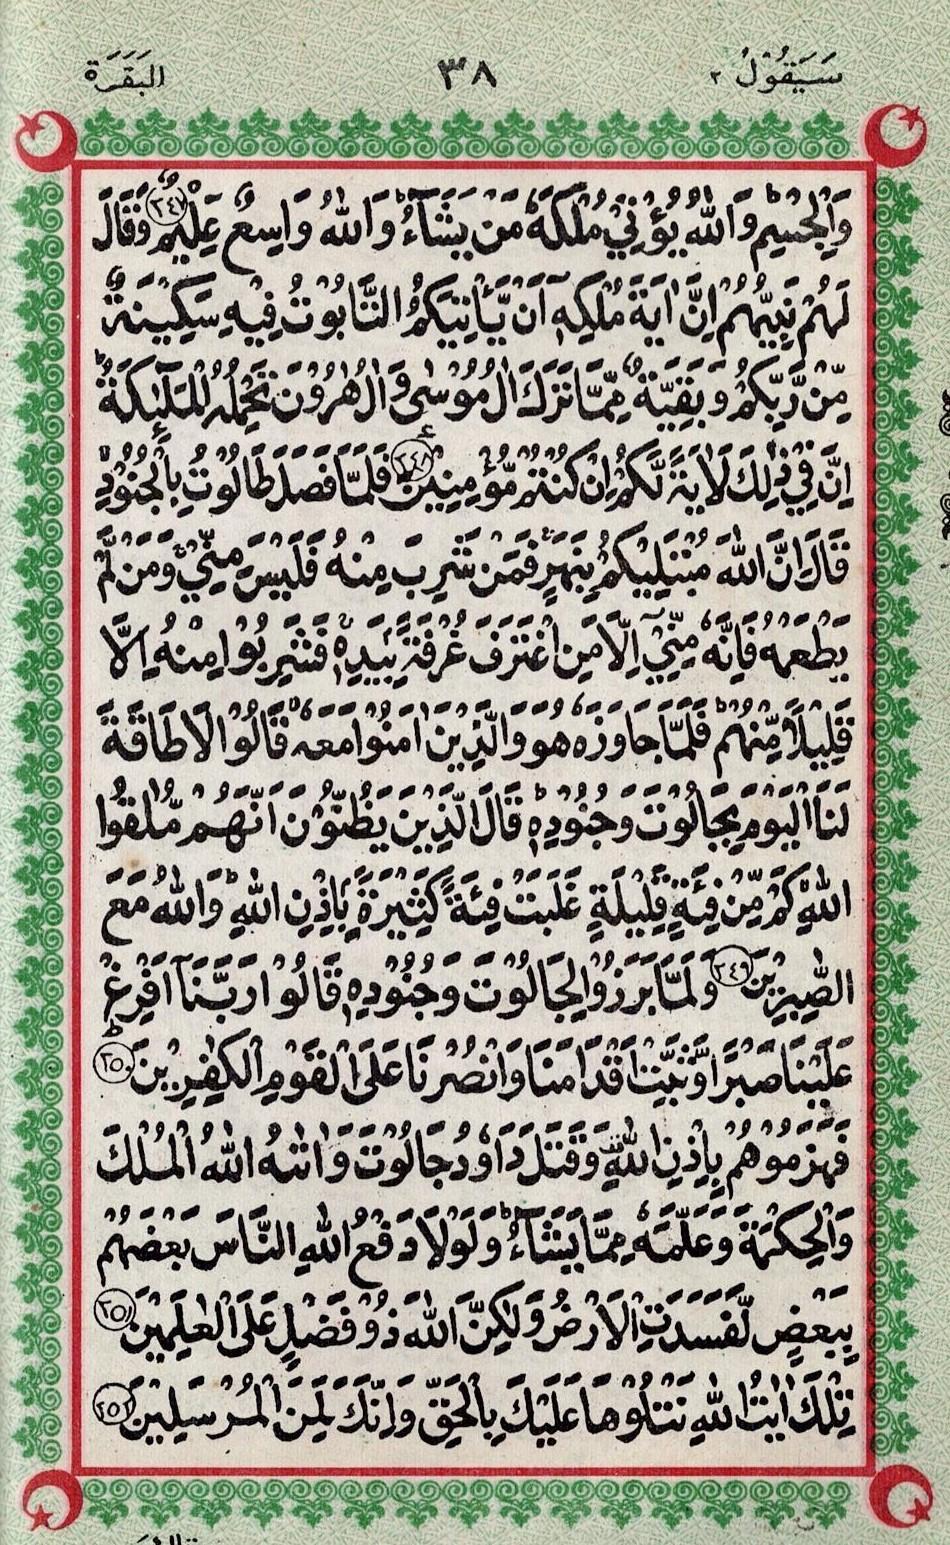 سَيَقُوْلُ ٢
٣٨
البَقَرَة
وَالْجِسْمِ ؕ وَاللّٰهُ يُؤْتِيْ مُلْكَهٗ مَنْ يَّشَآءُ ؕ وَاللّٰهُ وَاسِعٌ عَلِيْمٌ ﴿٢٤٧﴾ وَقَالَ
لَهُمْ نَبِيُّهُمْ اِنَّ اٰيَةَ مُلْكِهٖٓ اَنْ يَّاْتِيَكُمُ التَّابُوْتُ فِيْهِ سَكِيْنَةٌ
مِّنْ رَّبِّكُمْ وَبَقِيَّةٌ مِّمَّا تَرَكَ اٰلُ مُوْسٰى وَاٰلُ هٰرُوْنَ تَحْمِلُهُ الْمَلٰٓئِكَةُ ؕ
اِنَّ فِيْ ذٰلِكَ لَاٰيَةً لَّكُمْ اِنْ كُنْتُمْ مُّؤْمِنِيْنَ ﴿٢٤٨﴾ فَلَمَّا فَصَلَ طَالُوْتُ بِالْجُنُوْدِ ۙ
قَالَ اِنَّ اللّٰهَ مُبْتَلِيْكُمْ بِنَهَرٍ ۚ فَمَنْ شَرِبَ مِنْهُ فَلَيْسَ مِنِّيْ ۚ وَمَنْ لَّمْ
يَطْعَمْهُ فَاِنَّهٗ مِنِّيْٓ اِلَّا مَنِ اغْتَرَفَ غُرْفَةًۢ بِيَدِهٖ ۚ فَشَرِبُوْا مِنْهُ اِلَّا
قَلِيْلًا مِّنْهُمْ ؕ فَلَمَّا جَاوَزَهٗ هُوَ وَالَّذِيْنَ اٰمَنُوْا مَعَهٗ ۙ قَالُوْا لَا طَاقَةَ
لَنَا الْيَوْمَ بِجَالُوْتَ وَجُنُوْدِهٖ ؕ قَالَ الَّذِيْنَ يَظُنُّوْنَ اَنَّهُمْ مُّلٰقُوا
اللّٰهِ ۙ كَمْ مِّنْ فِئَةٍ قَلِيْلَةٍ غَلَبَتْ فِئَةً كَثِيْرَةًۢ بِاِذْنِ اللّٰهِ ؕ وَاللّٰهُ مَعَ
الصّٰبِرِيْنَ ﴿٢٤٩﴾ وَلَمَّا بَرَزُوْا لِجَالُوْتَ وَجُنُوْدِهٖ قَالُوْا رَبَّنَآ اَفْرِغْ
عَلَيْنَا صَبْرًا وَّثَبِّتْ اَقْدَامَنَا وَانْصُرْنَا عَلَى الْقَوْمِ الْكٰفِرِيْنَ ؕ ﴿٢٥٠﴾
فَهَزَمُوْهُمْ بِاِذْنِ اللّٰهِ ۙ وَقَتَلَ دَاوٗدُ جَالُوْتَ وَاٰتٰىهُ اللّٰهُ الْمُلْكَ
وَالْحِكْمَةَ وَعَلَّمَهٗ مِمَّا يَشَآءُ ؕ وَلَوْلَا دَفْعُ اللّٰهِ النَّاسَ بَعْضَهُمْ
بِبَعْضٍ لَّفَسَدَتِ الْاَرْضُ وَلٰكِنَّ اللّٰهَ ذُوْ فَضْلٍ عَلَى الْعٰلَمِيْنَ ﴿٢٥١﴾
تِلْكَ اٰيٰتُ اللّٰهِ نَتْلُوْهَا عَلَيْكَ بِالْحَقِّ ؕ وَاِنَّكَ لَمِنَ الْمُرْسَلِيْنَ ﴿٢٥٢﴾